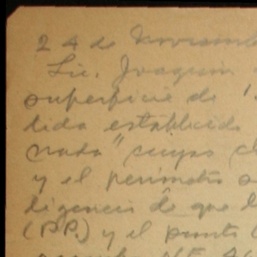 24 de Noviemb
Lic. Joaquin
superficie de 1.
tida establecido
nada" cuyos cl
y el perimetro o
ligencia de que l
(P.P.) y el punto